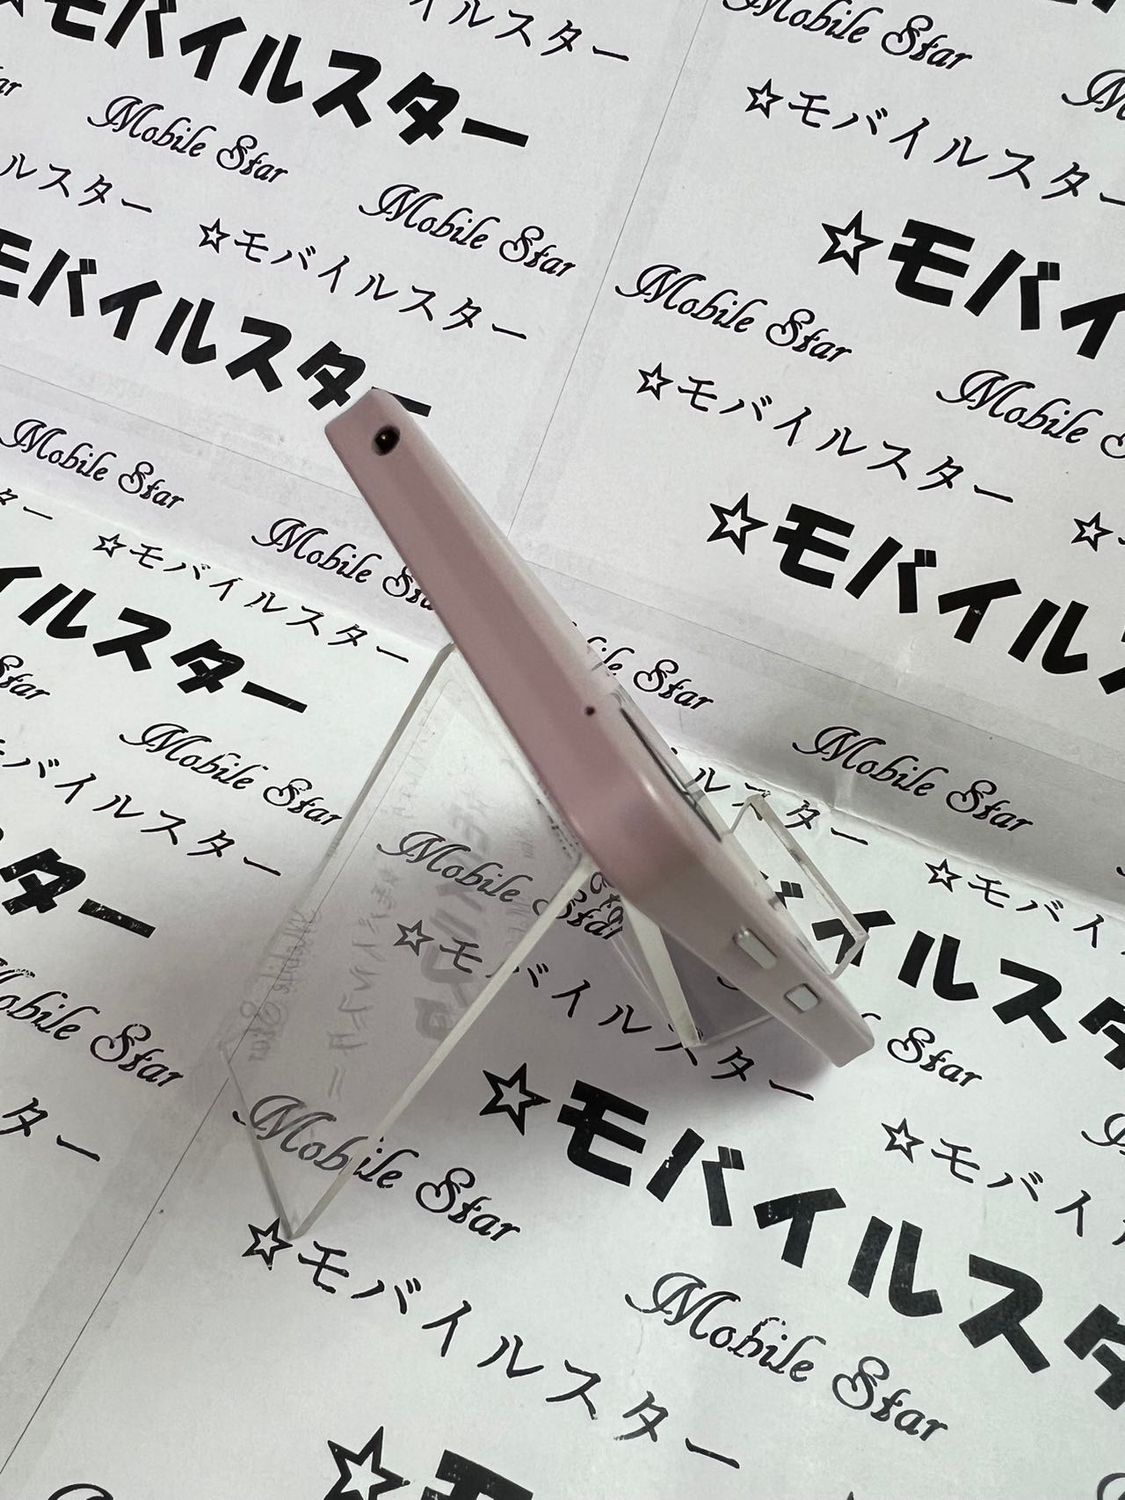 モバイルスター
イルスター
Mobile Star
Mobile Star
☆モバイルスター
ルスター
Mobile Star
☆モバイルスター
☆モバイ
モバイルスター
Mobile Star
☆モバイルスター
Mobile Star
Mobile Star
Mobile
☆モバイルスター
☆モバイルス
イルスター
Mobile Star
Mobile Star
スター
バイルスター
☆モバイ
ター
Mobile Star
☆モバイルスター
バイルスタ
Mobile Star
Star
ター
Mobile Star
☆モバイルスタ
☆モバイ
☆モバイルスター
Mobile Star
☆モ